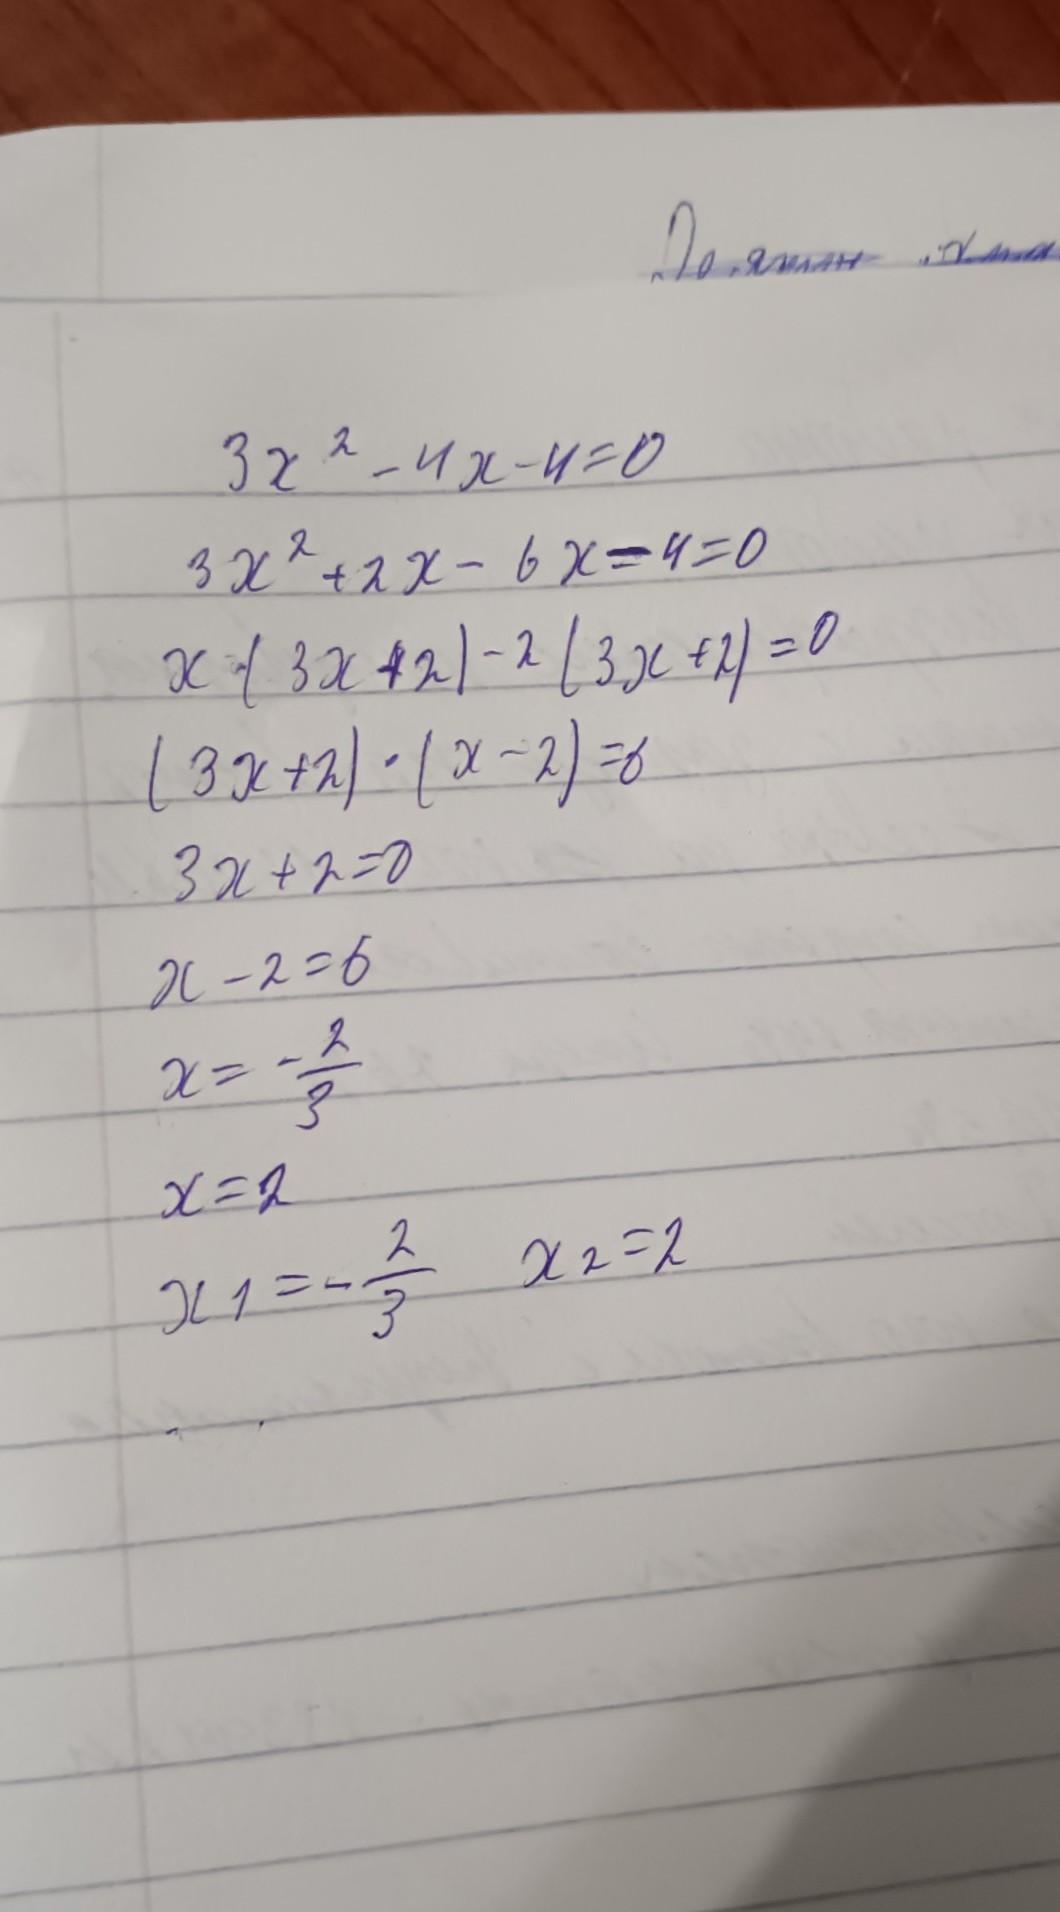 3x² - 4x - 4 = 0
3x² + 2x - 6x - 4 = 0
x · (3x + 2) - 2 (3x + 2) = 0
(3x + 2) · (x - 2) = 0
3x + 2 = 0
x - 2 = 0
x = - 2/3
x = 2
x1 = - 2/3 x2 = 2